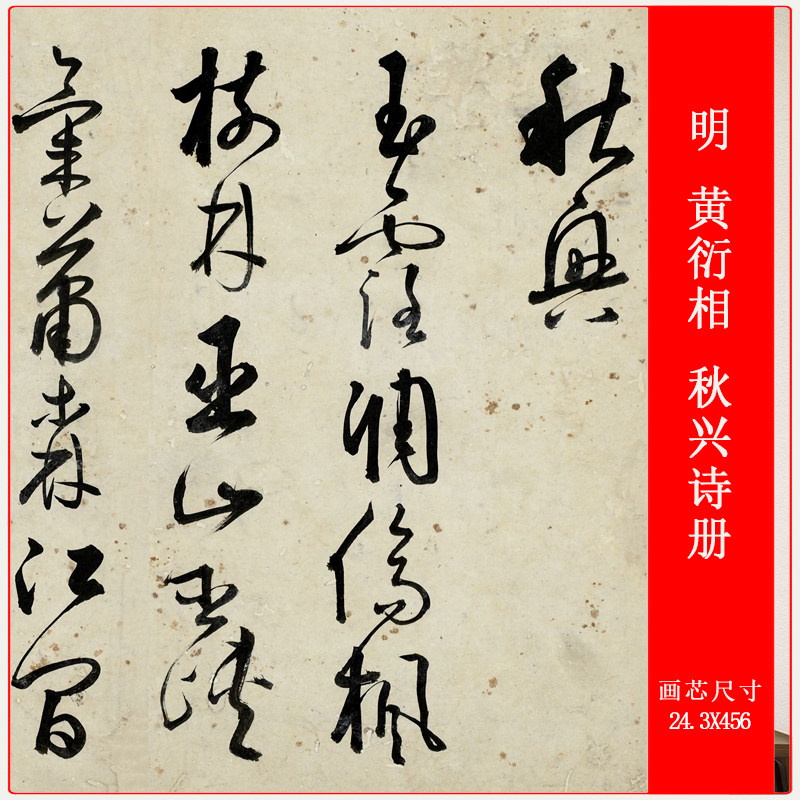 明 黄衍相 秋兴诗册
画芯尺寸
24.3X456
秋興
玉露凋傷楓
樹林巫山巫峽
氣蕭森江間